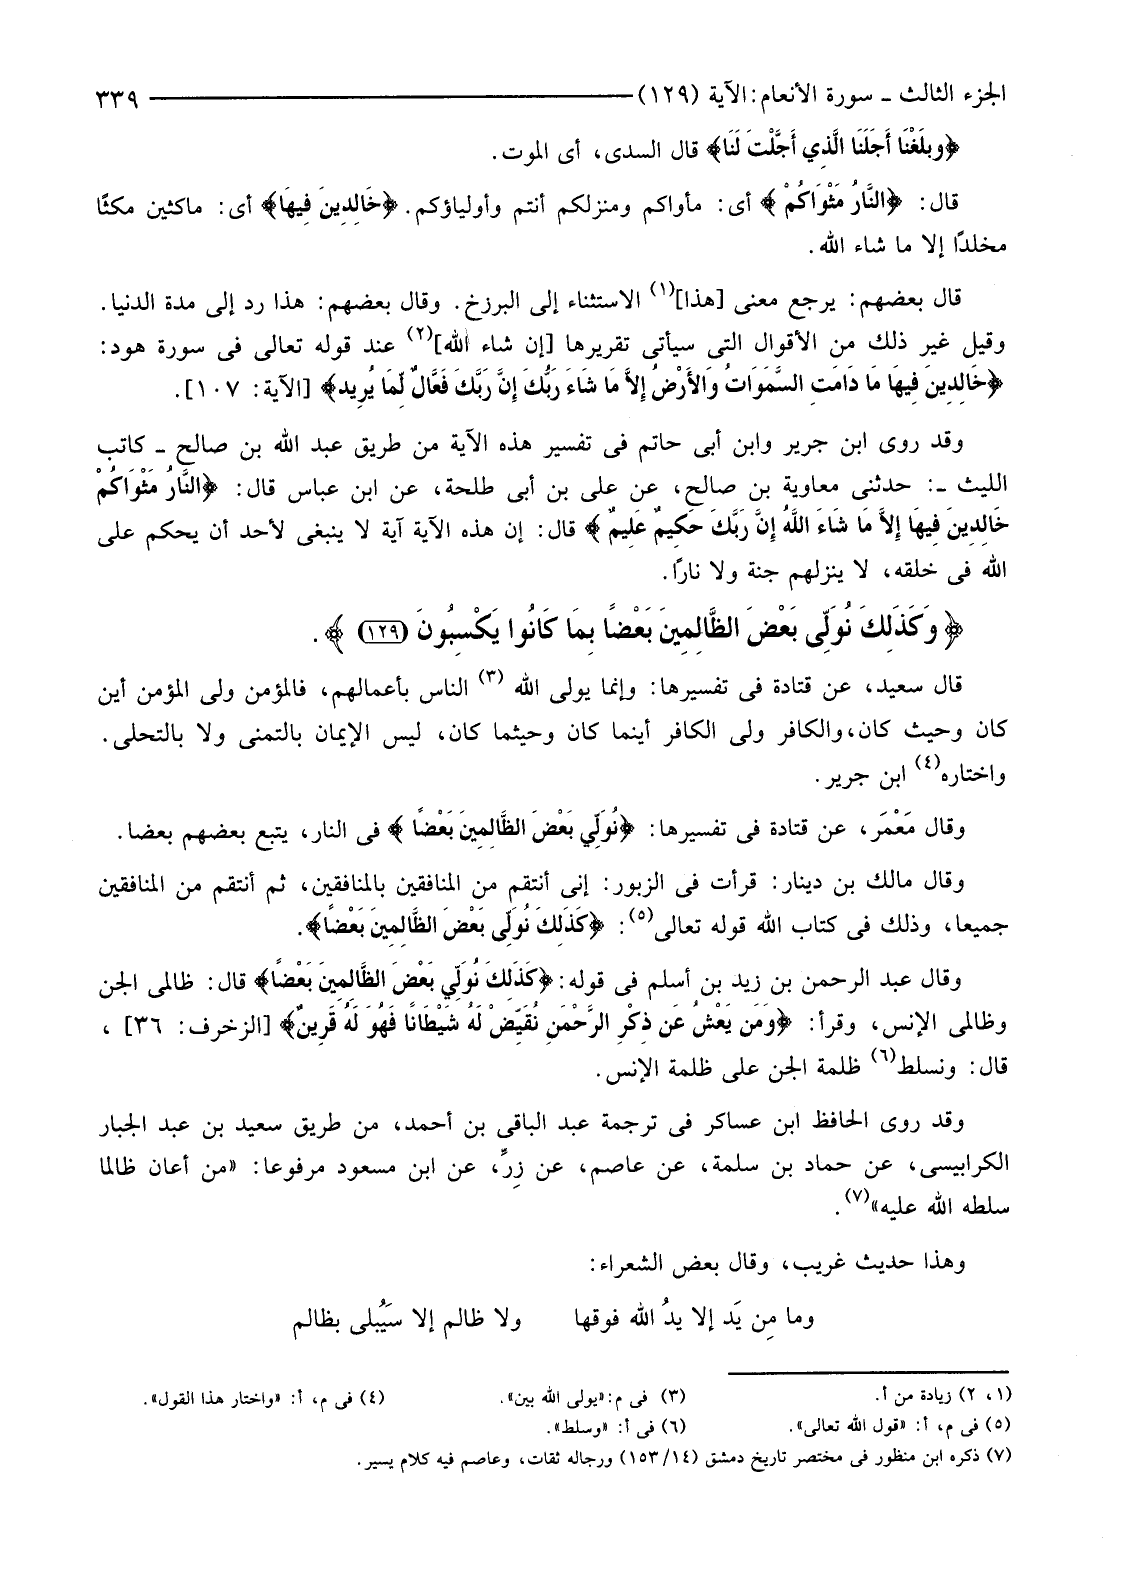 الجزء الثالث ـ سورة الأنعام: الآية (١٢٩) ٣٣٩
﴿وبلَغْنَا أَجَلَنَا الَّذِي أَجَّلْتَ لَنَا﴾ قال السدى، أى الموت.
قال: ﴿النَّارُ مَثْوَاكُمْ﴾ أى: مأواكم ومنزلكم أنتم وأولياؤكم. ﴿خَالِدِينَ فِيهَا﴾ أى: ماكثين مكثًا
مخلدًا إلا ما شاء الله.
قال بعضهم: يرجع معنى [هذا](١) الاستثناء إلى البرزخ. وقال بعضهم: هذا رد إلى مدة الدنيا.
وقيل غير ذلك من الأقوال التى سيأتى تقريرها [إن شاء الله](٢) عند قوله تعالى فى سورة هود:
﴿خَالِدِينَ فِيهَا مَا دَامَتِ السَّمَوَاتُ وَالأَرْضُ إِلاَّ مَا شَاءَ رَبُّكَ إِنَّ رَبَّكَ فَعَّالٌ لِّمَا يُرِيد﴾ [الآية: ١٠٧].
وقد روى ابن جرير وابن أبى حاتم فى تفسير هذه الآية من طريق عبد الله بن صالح ـ كاتب
الليث ـ: حدثنى معاوية بن صالح، عن على بن أبى طلحة، عن ابن عباس قال: ﴿النَّارُ مَثْوَاكُمْ
خَالِدِينَ فِيهَا إِلاَّ مَا شَاءَ اللَّهُ إِنَّ رَبَّكَ حَكِيمٌ عَلِيمٌ﴾ قال: إن هذه الآية آية لا ينبغى لأحد أن يحكم على
الله فى خلقه، لا ينزلهم جنة ولا نارًا.
﴿وَكَذَلِكَ نُوَلِّى بَعْضَ الظَّالِمِينَ بَعْضًا بِمَا كَانُوا يَكْسِبُونَ (١٢٩)﴾.
قال سعيد، عن قتادة فى تفسيرها: وإنما يولى الله (٣) الناس بأعمالهم، فالمؤمن ولى المؤمن أين
كان وحيث كان،والكافر ولى الكافر أينما كان وحيثما كان، ليس الإيمان بالتمنى ولا بالتحلى.
واختاره(٤) ابن جرير.
وقال مَعْمَر، عن قتادة فى تفسيرها: ﴿نُوَلِّي بَعْضَ الظَّالِمِينَ بَعْضًا﴾ فى النار، يتبع بعضهم بعضا.
وقال مالك بن دينار: قرأت فى الزبور: إنى أنتقم من المنافقين بالمنافقين، ثم أنتقم من المنافقين
جميعا، وذلك فى كتاب الله قوله تعالى(٥): ﴿كَذَلِكَ نُوَلِّى بَعْضَ الظَّالِمِينَ بَعْضًا﴾.
وقال عبد الرحمن بن زيد بن أسلم فى قوله: ﴿كَذَلِكَ نُوَلِّي بَعْضَ الظَّالِمِينَ بَعْضًا﴾ قال: ظالمى الجن
وظالمى الإنس، وقرأ: ﴿وَمَن يَعْشُ عَن ذِكْرِ الرَّحْمَنِ نُقَيِّضْ لَهُ شَيْطَانًا فَهُوَ لَهُ قَرِينٌ﴾ [الزخرف: ٣٦] ،
قال: ونسلط(٦) ظلمة الجن على ظلمة الإنس.
وقد روى الحافظ ابن عساكر فى ترجمة عبد الباقى بن أحمد، من طريق سعيد بن عبد الجبار
الكرابيسى، عن حماد بن سلمة، عن عاصم، عن زِرٍّ، عن ابن مسعود مرفوعا: «من أعان ظالما
سلطه الله عليه»(٧).
وهذا حديث غريب، وقال بعض الشعراء:
وما مِن يَد إلا يدُ الله فوقها ولا ظالم إلا سَيُبلى بظالم
(١ ، ٢) زيادة من أ. (٣) فى م: «يولى الله بين». (٤) فى م، أ: «واختار هذا القول».
(٥) فى م، أ: «قول الله تعالى». (٦) فى أ: «وسلط».
(٧) ذكره ابن منظور فى مختصر تاريخ دمشق (١٤/ ١٥٣) ورجاله ثقات، وعاصم فيه كلام يسير.